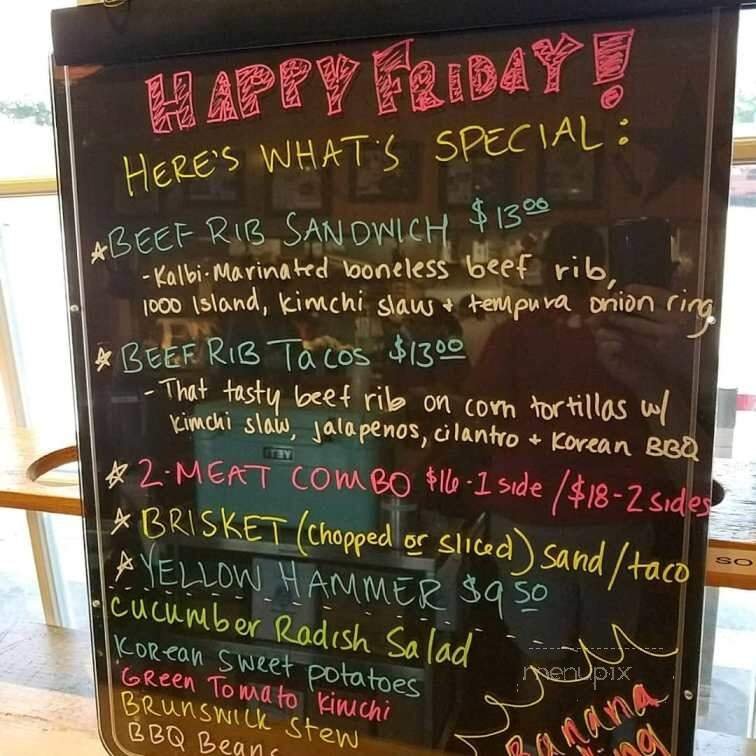 HAPPY FRIDAY!
HERE'S WHAT'S SPECIAL:
BEEF RIB SANDWICH $13.00
- Kalbi-Marinated boneless beef rib,
1000 Island, Kimchi slaw + tempura onion ring
BEEF RIB TACOS $13.00
- That tasty beef rib on corn tortillas w/
Kimchi slaw, jalapenos, cilantro + Korean BBQ
2-MEAT COMBO $16-1 side / $18-2 sides
BRISKET (chopped or sliced) sand/taco
YELLOW HAMMER $9.50
Cucumber Radish Salad
Korean Sweet potatoes
Green Tomato Kimchi
Brunswick Stew
BBQ Beans
Banana
menupix
ITBY
SO